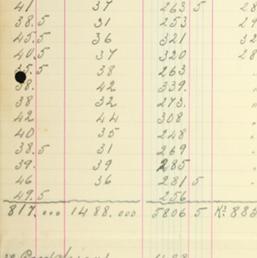 41 37 263 5 28
38.5 31 253 29
45.5 36 321 32
40.5 37 320 28
35.5 38 263
38. 42 339.
38 32 273.
42 44 308
40 35 248
38.5 31 269
39. 39 285
46 36 281 5
49.5 256
817.000 1488.000 5806 5